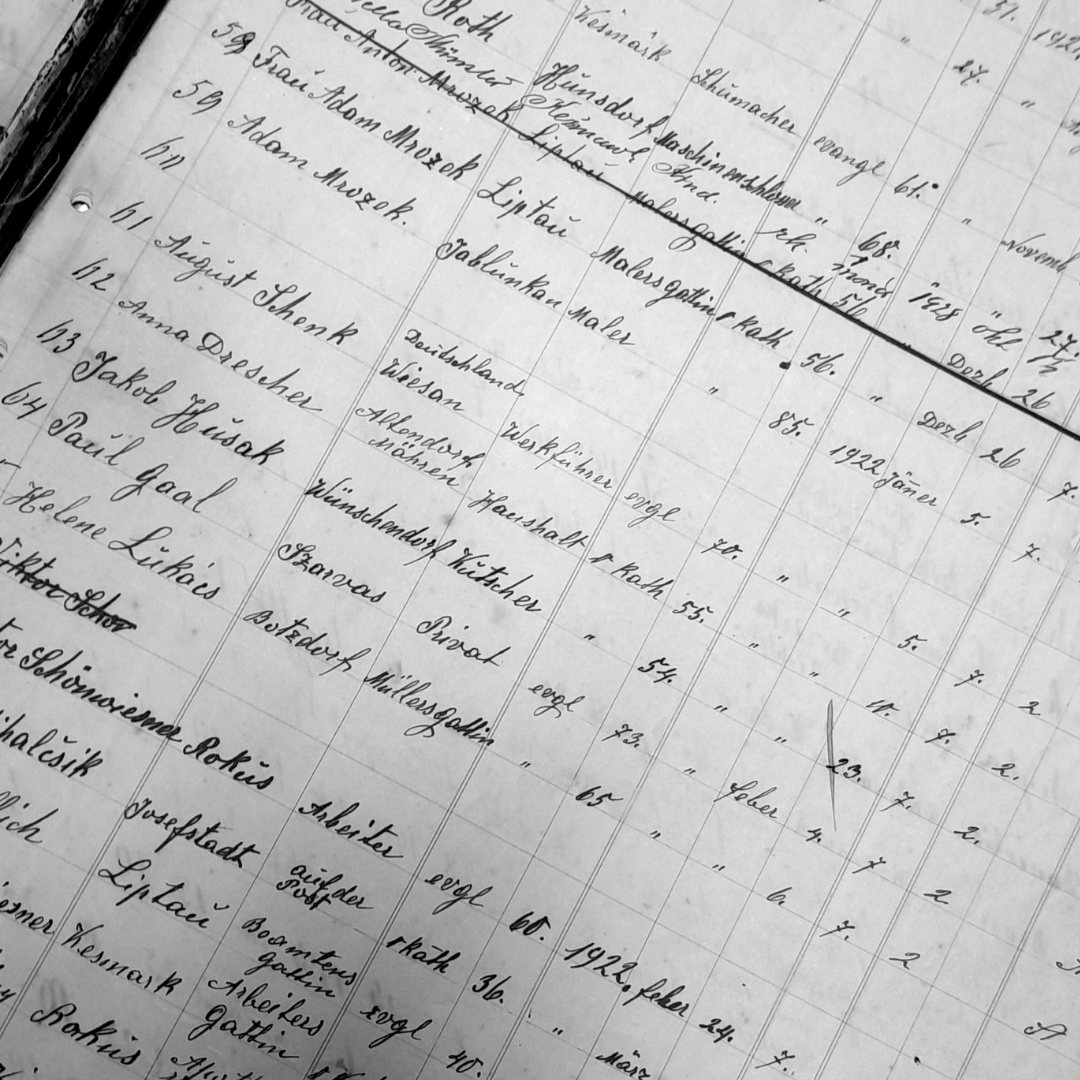 Roth Kesmark Schumacher evangl 61. " 27. "
Hunsdorf Maschinenschlosser " 68. " Novemb 27.
Kesmark Kind. rk. 1928
Frau Anton Mrozek Liptau Malersgattin r Kath 56 " Dezb 26
58 Frau Adam Mrozek Liptau Malersgattin r Kath. 56. " Dezb 26 7.
59 Adam Mrozek. Jablunkau Maler " 85. 1922 Jäner 5. 7.
60
61 August Schenk Deutschland Wiesan Werkführer evgl 70. " " 5. 7. 2
62 Anna Drescher Altendorf Mähren Haushalt r Kath 55. " " 10. 7. 2.
63 Jakob Husak Wünschendorf Kutscher " 54. " " 23. 7. 2.
64 Paul Gaal Szarvas Privat evgl 73. " feber 4. 7 2
Helene Lukács Botzdorf Müllersgattin " 65 " " 6. 7. 2
Viktor Schön
Schönwiesner Rokus Arbeiter evgl 60. 1922. feber 24. 7.
halčsik Josefstadt auf der Post r Kath 36. " März
lich Liptau Beamtens gattin evgl 40.
esner Kesmark Arbeiters Gattin
Rokus